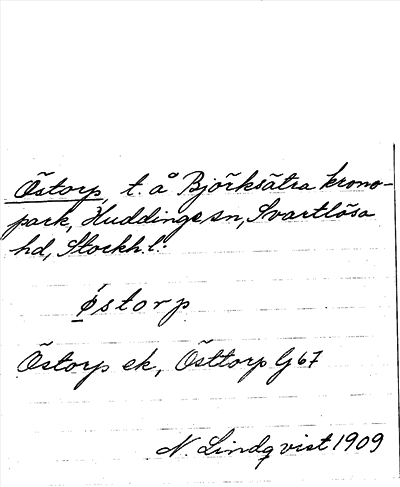 Östorp, t. å Björksätra krono-
park, Huddinge sn, Svartlösa
hd, Stockh. l.
östorp
Östorp ek, Östtorp Gj 67
N. Lindqvist 1909